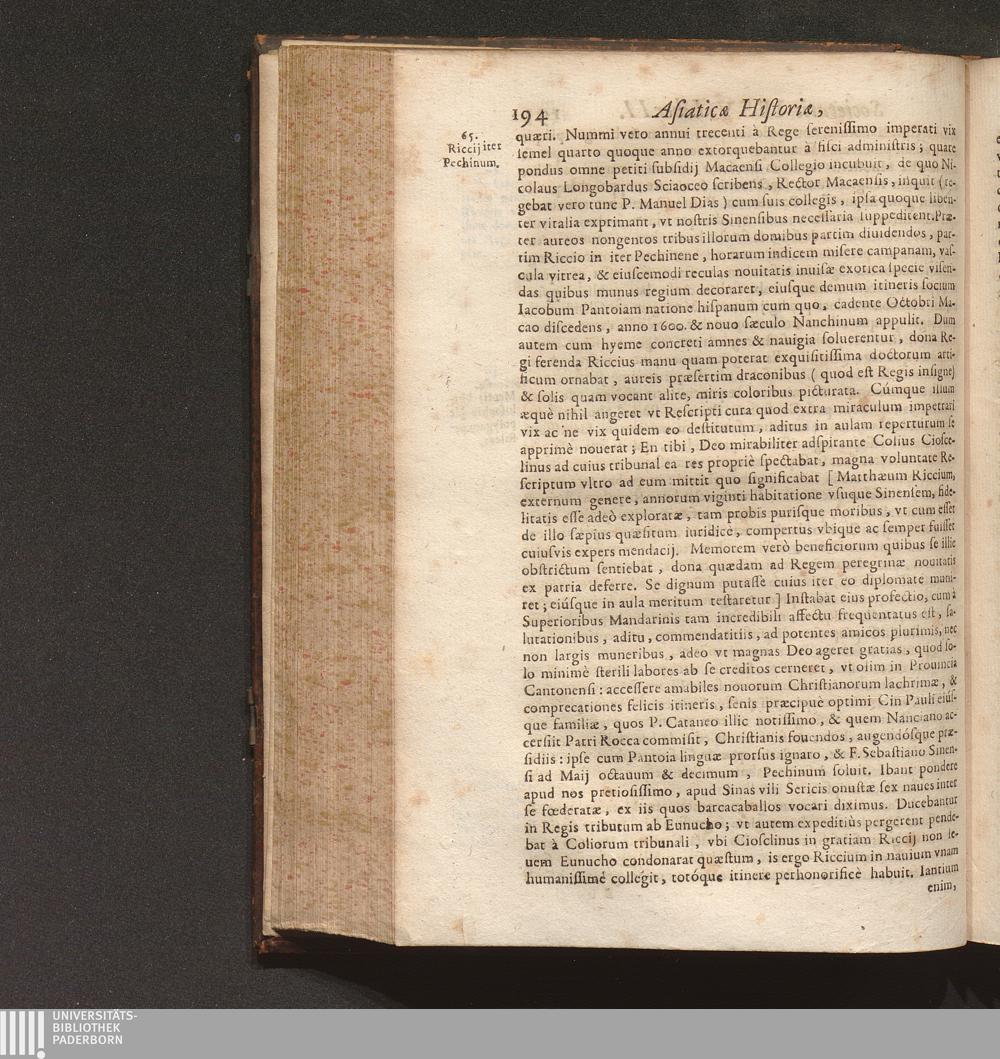 194 Asiaticæ Historiæ,
65.
Riccij iter
Pechinum.
quæri. Nummi vero annui trecenti à Rege serenissimo imperati vix
semel quarto quoque anno extorquebantur à fisci administris; quare
pondus omne petiti subsidij Macaensi Collegio incubuit, de quo Ni-
colaus Longobardus Sciaoceo scribens, Rector Macaensis, inquit (re-
gebat vero tunc P. Manuel Dias) cum suis collegis, ipsa quoque liben-
ter vitalia exprimant, vt nostris Sinensibus necessaria suppeditent. Præ-
ter aureos nongentos tribus illorum domibus partim diuidendos, par-
tim Riccio in iter Pechinense, horarum indicem misere campanam, vas-
cula vitrea, & eiuscemodi reculas nouitatis inuisæ exotica specie visen-
das quibus munus regium decoraret, eiusque demum itineris socium
Iacobum Pantoiam natione hispanum cum quo, cadente Octobri Ma-
cao discedens, anno 1600. & nouo sæculo Nanchinum appulit. Dum
autem cum hyeme concreti amnes & nauigia soluerentur, dona Re-
gi ferenda Riccius manu quam poterat exquisitissima doctorum arti-
ficum ornabat, aureis præsertim draconibus (quod est Regis insigne)
& solis quam vocant alite, miris coloribus picturata. Cúmque illum
æquè nihil angeret vt Rescripti cura quod extra miraculum impetrari
vix ac ne vix quidem eo destitutum, aditus in aulam reperturum se
apprimè nouerat; En tibi, Deo mirabiliter adspirante Colius Ciosce-
linus ad cuius tribunal ea res propriè spectabat, magna voluntate Re-
scriptum vltro ad eum mittit quo significabat [Matthæum Riccium,
externum genere, annorum viginti habitatione vsuque Sinensem, fide-
litatis esse adeò exploratæ, tam probis purisque moribus, vt cum esset
de illo sæpius quæsitum iuridicè, compertus vbique ac semper fuisset
cuiusvis expers mendacij. Memorem verò beneficiorum quibus se illic
obstrictum sentiebat, dona quædam ad Regem peregrinæ nouitatis
ex patria deferre. Se dignum putasse cuius iter eo diplomate muni-
ret; eiúsque in aula meritum testaretur] Instabat eius profectio, cum à
Superioribus Mandarinis tam incredibili affectu frequentatus est, sa-
lutationibus, aditu, commendatitiis, ad potentes amicos plurimis, nec
non largis muneribus, adeo vt magnas Deo ageret gratias, quod so-
lo minimè sterili labores ab se creditos cerneret, vt olim in Prouincia
Cantonensi: accessere amabiles nouorum Christianorum lachrimæ, &
comprecationes felicis itineris, senis præcipuè optimi Cin Pauli eiús-
que familiæ, quos P. Cataneo illic notissimo, & quem Nanciano ac-
cersiit Patri Rocca commisit, Christianis fouendos, augendósque præ-
sidiis: ipse cum Pantoia linguæ prorsus ignaro, & F. Sebastiano Sinen-
si ad Maij octauum & decimum, Pechinum soluit. Ibant pondere
apud nos pretiosissimo, apud Sinas vili Sericis onustæ sex naues inter
se fœderatæ, ex iis quos barcacaballos vocari diximus. Ducebantur
in Regis tributum ab Eunucho; vt autem expeditiùs pergerent pende-
bat à Coliorum tribunali, vbi Ciosclinus in gratiam Riccij non le-
uem Eunucho condonarat quæstum, is ergo Riccium in nauium vnam
humanissimè collegit, totóque itinere perhonorificè habuit. Iantium
enim,
UNIVERSITÄTS-
BIBLIOTHEK
PADERBORN